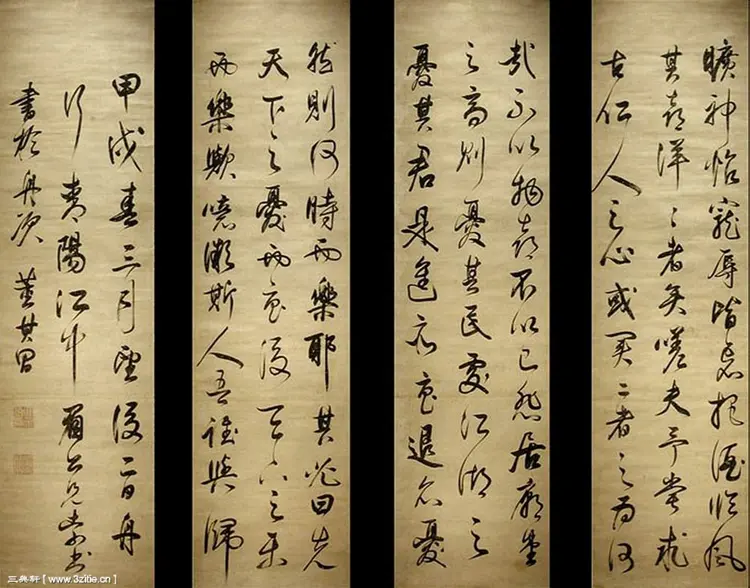 曠神怡寵辱皆忘把酒臨風
其喜洋々者矣嗟夫予嘗求
古仁人之心或異二者之為何
哉不以物喜不以己悲居廟堂
之高則憂其民處江湖之
憂其君是進亦憂退亦憂
然則何時而樂耶其必曰先
天下之憂而憂後天下之樂
而樂歟噫微斯人吾誰與歸
甲戌春三月望後二日舟
行陽江中
書於舟次 董其昌
三典轩【www.3zitie.cn】